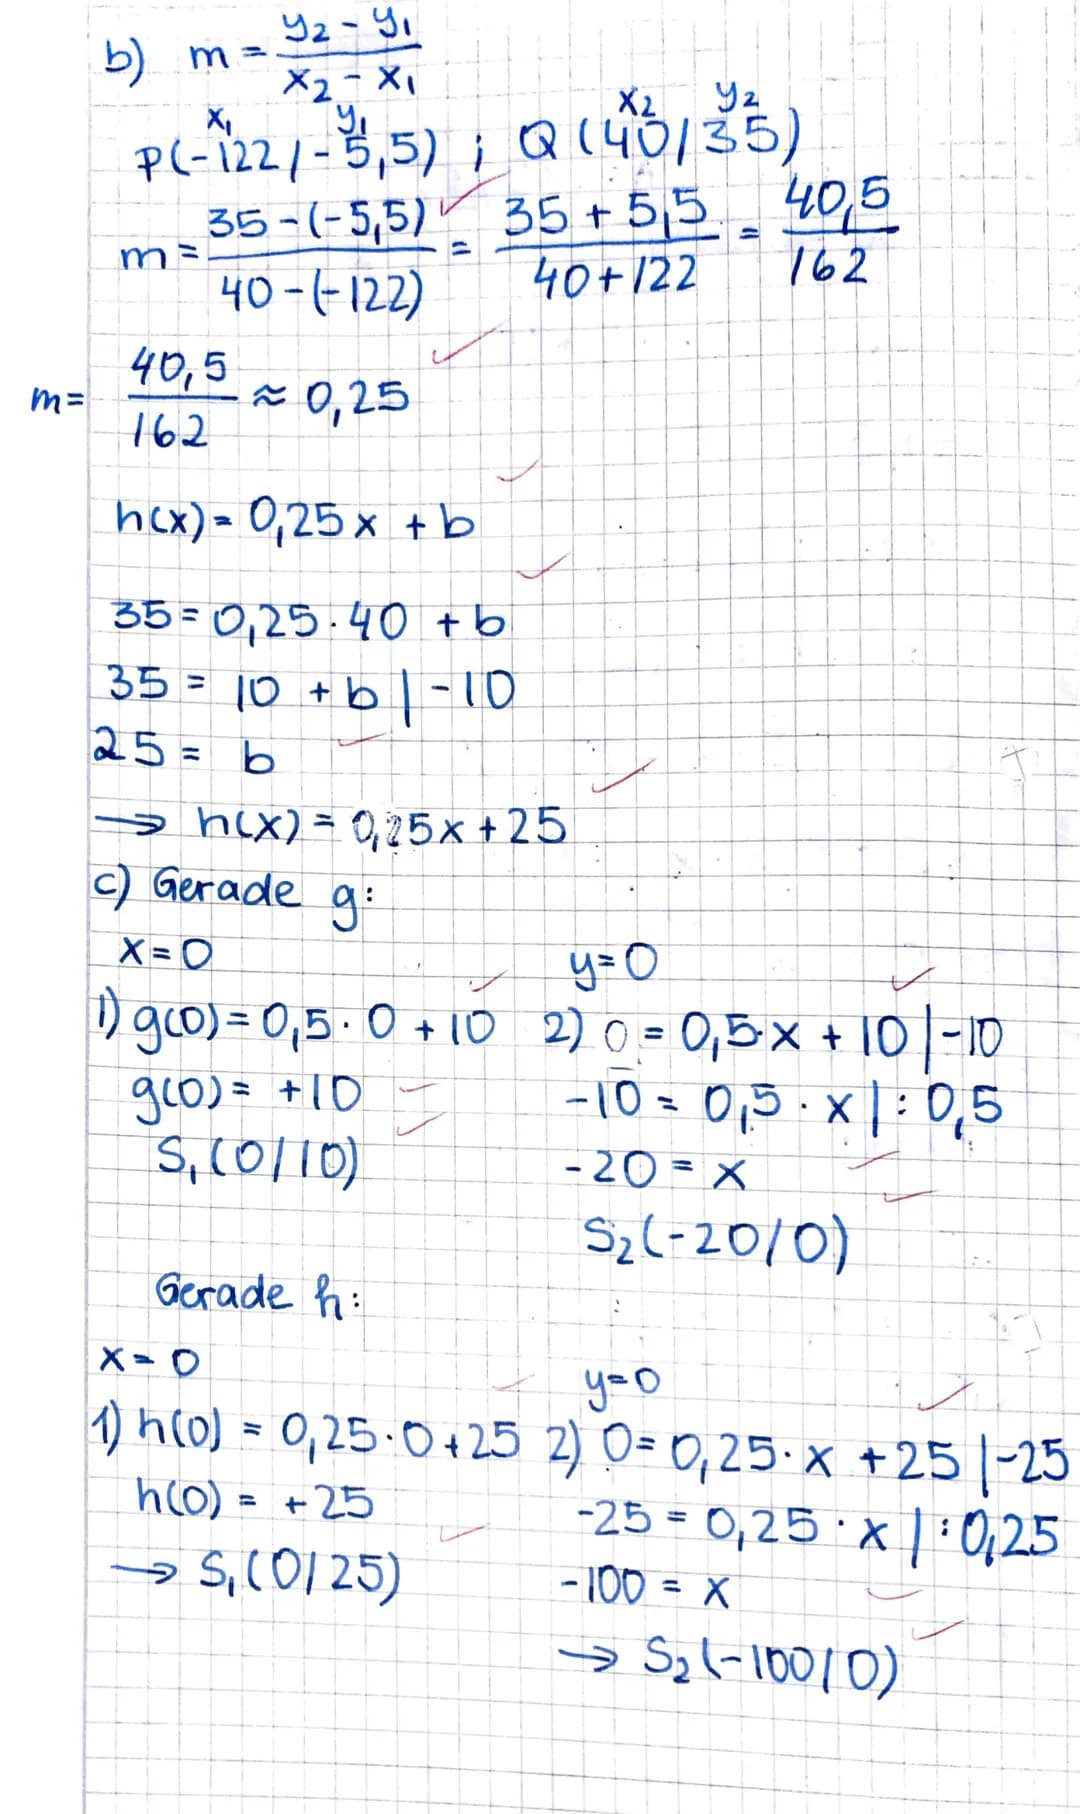 b) m = (y₂ - y₁)/(x₂ - x₁)
x₁ y₁ x₂ y₂
P(-122/-5,5) ; Q(40/35)
m = (35-(-5,5))/(40-(-122)) = (35+5,5)/(40+122) = 40,5/162
m = 40,5/162 ≈ 0,25
h(x) = 0,25x + b
35 = 0,25·40 + b
35 = 10 + b |-10
25 = b
→ h(x) = 0,25x + 25
c) Gerade g:
x = 0
1) g(0) = 0,5·0 + 10
g(0) = +10
S₁(0/10)
y = 0
2) 0 = 0,5·x + 10 |-10
-10 = 0,5·x |:0,5
-20 = x
S₂(-20/0)
Gerade h:
x = 0
1) h(0) = 0,25·0+25
h(0) = +25
→ S₁(0/25)
y = 0
2) 0 = 0,25·x + 25 |-25
-25 = 0,25·x |:0,25
-100 = x
→ S₂(-100/0)